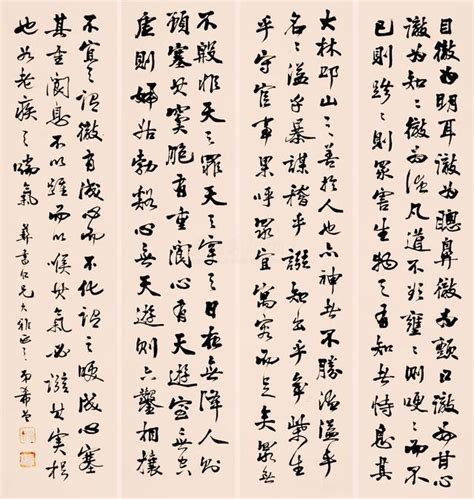 目徹為明耳徹為聰鼻徹為顫口徹為甘心
徹為知〻徹為德凡道不欲壅〻則哽〻而不
已則跈〻則眾害生物之有知者恃息其
大林邱山之善於人也亦神者不勝德溢乎
名〻溢乎暴謀稽乎誸知出乎爭柴生
乎守官事果乎眾宜寓客而足矣
不殷非天之罪天之穿之日夜無降人則
顧塞其竇胞有重閬心有天遊室無空
虛則婦姑勃谿心無天遊則六鑿相攘
不宜之謂徹有成心而不化謂之哽成心塞
其重閬息不以踵而以喉其氣必誸其
也如老之喘氣
仁兄大雅正之